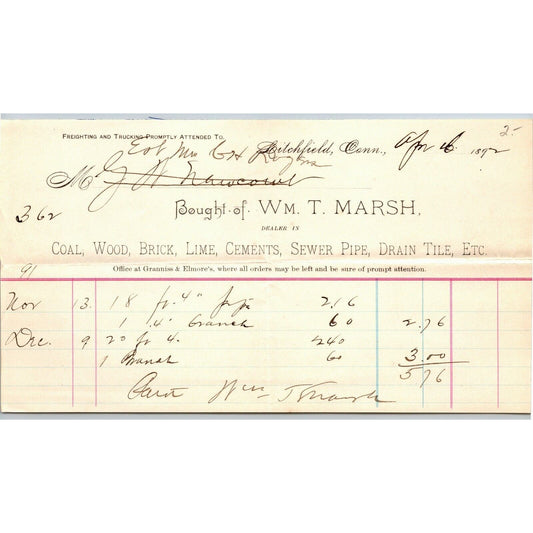 2-
FREIGHTING AND TRUCKING PROMPTLY ATTENDED TO.
Est Mrs Litchfield, Conn., Apr 1892
M G W
362
Bought of WM. T. MARSH,
DEALER IN
COAL, WOOD, BRICK, LIME, CEMENTS, SEWER PIPE, DRAIN TILE, ETC.
91 Office at Granniss & Elmore's, where all orders may be left and be sure of prompt attention.
Nov 13. 18 4" 2.16
1 4" Branch 60 2.76
Dec. 9 20 4. 240
1 Branch 60 3.00
5 76
Wm T Marsh